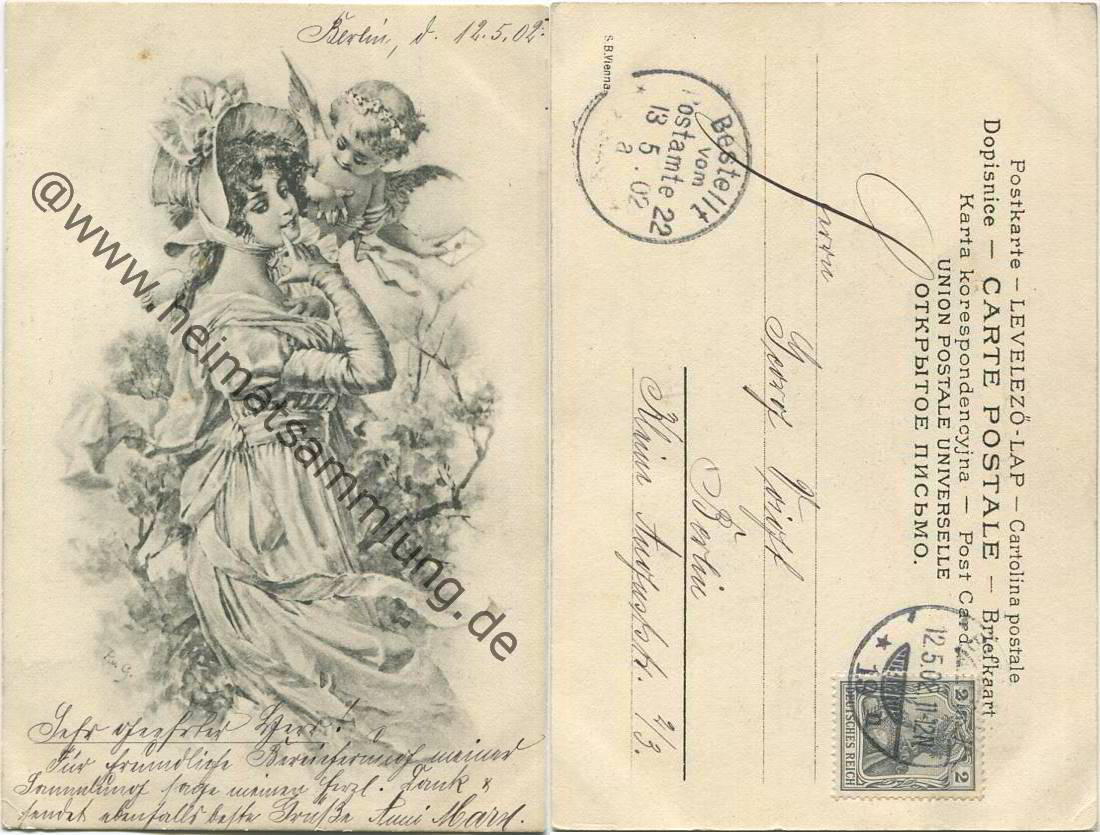 Berlin, d. 12.5.02.
@www.heimatsammlung.de
Sehr geehrter Herr!
Für freundliche Bereicherung meiner
Sammlung sage meinen herzl. Dank &
sendet ebenfalls beste Grüße Anni
S.B.Vienna.
Bestellt
vom
Postamte 22
13 5 .02
a
Postkarte – LEVELEZŐ-LAP – Cartolina postale
Dopisnice – CARTE POSTALE – Briefkaart
Karta korespondencyjna – Post Card
UNION POSTALE UNIVERSELLE
ОТКРЫТОЕ ПИСЬМО.
Herrn
Georg Voigt
Berlin
Klein Auguststr. 4/3.
12.5.02 11-12N
2 2
DEUTSCHES REICH